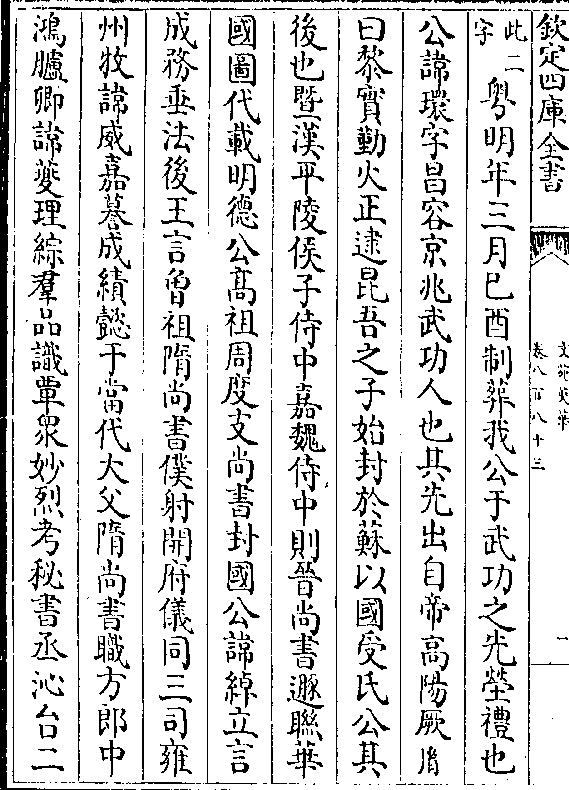 欽定四庫全書
文苑英華
卷八百八十三
一
此二字粤明年三月巳酉制葬我公于武功之先塋禮也
公諱環字昌容京兆武功人也其先出自帝高陽厥胤
曰黎實勤火正逮昆吾之子始封於蘇以國受氏公其
後也暨漢平陵侯子侍中嘉魏侍中則晉尚書遯聯華
國圖代載明德公髙祖周度支尚書封國公諱綽立言
成務垂法後王言曾祖隋尚書僕射開府儀同三司雍
州牧諱威嘉謩成績懿于當代大父隋尚書職方郎中
鴻臚卿諱䕫理綜羣品識覃衆妙烈考秘書丞沁台二